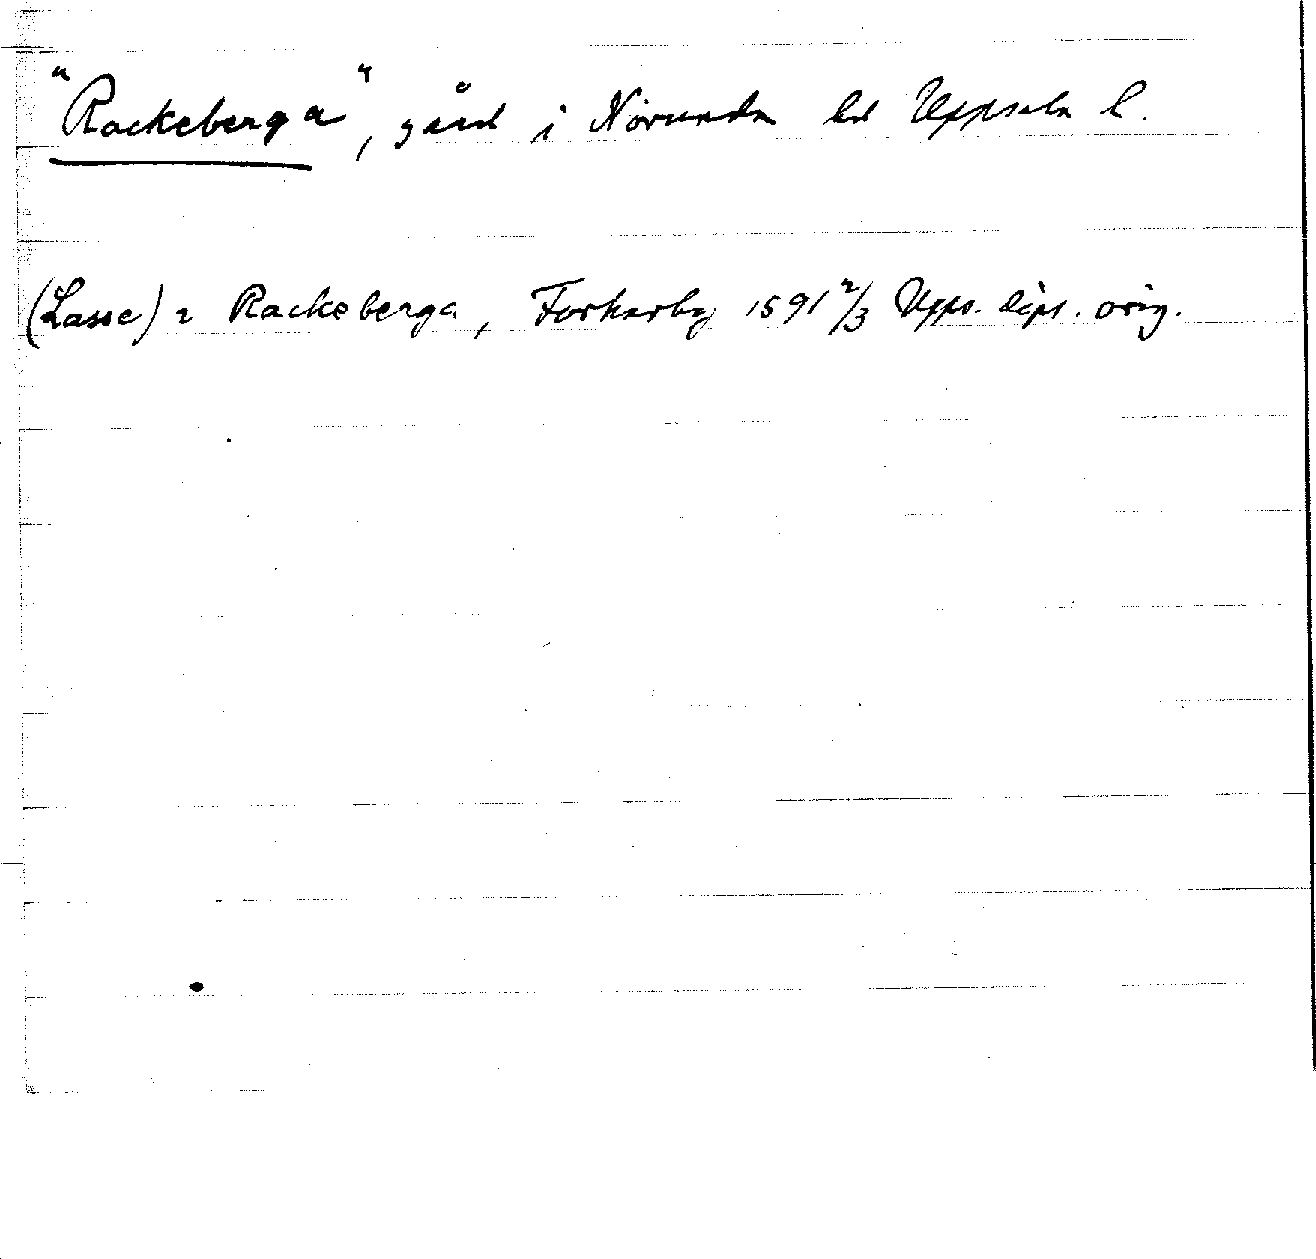 "Rackeberga", gård i Norunda hd Uppsala l.
(Lasse) i Rackeberga, Forkarby 1591 2/3 Upps. dipl. orig.